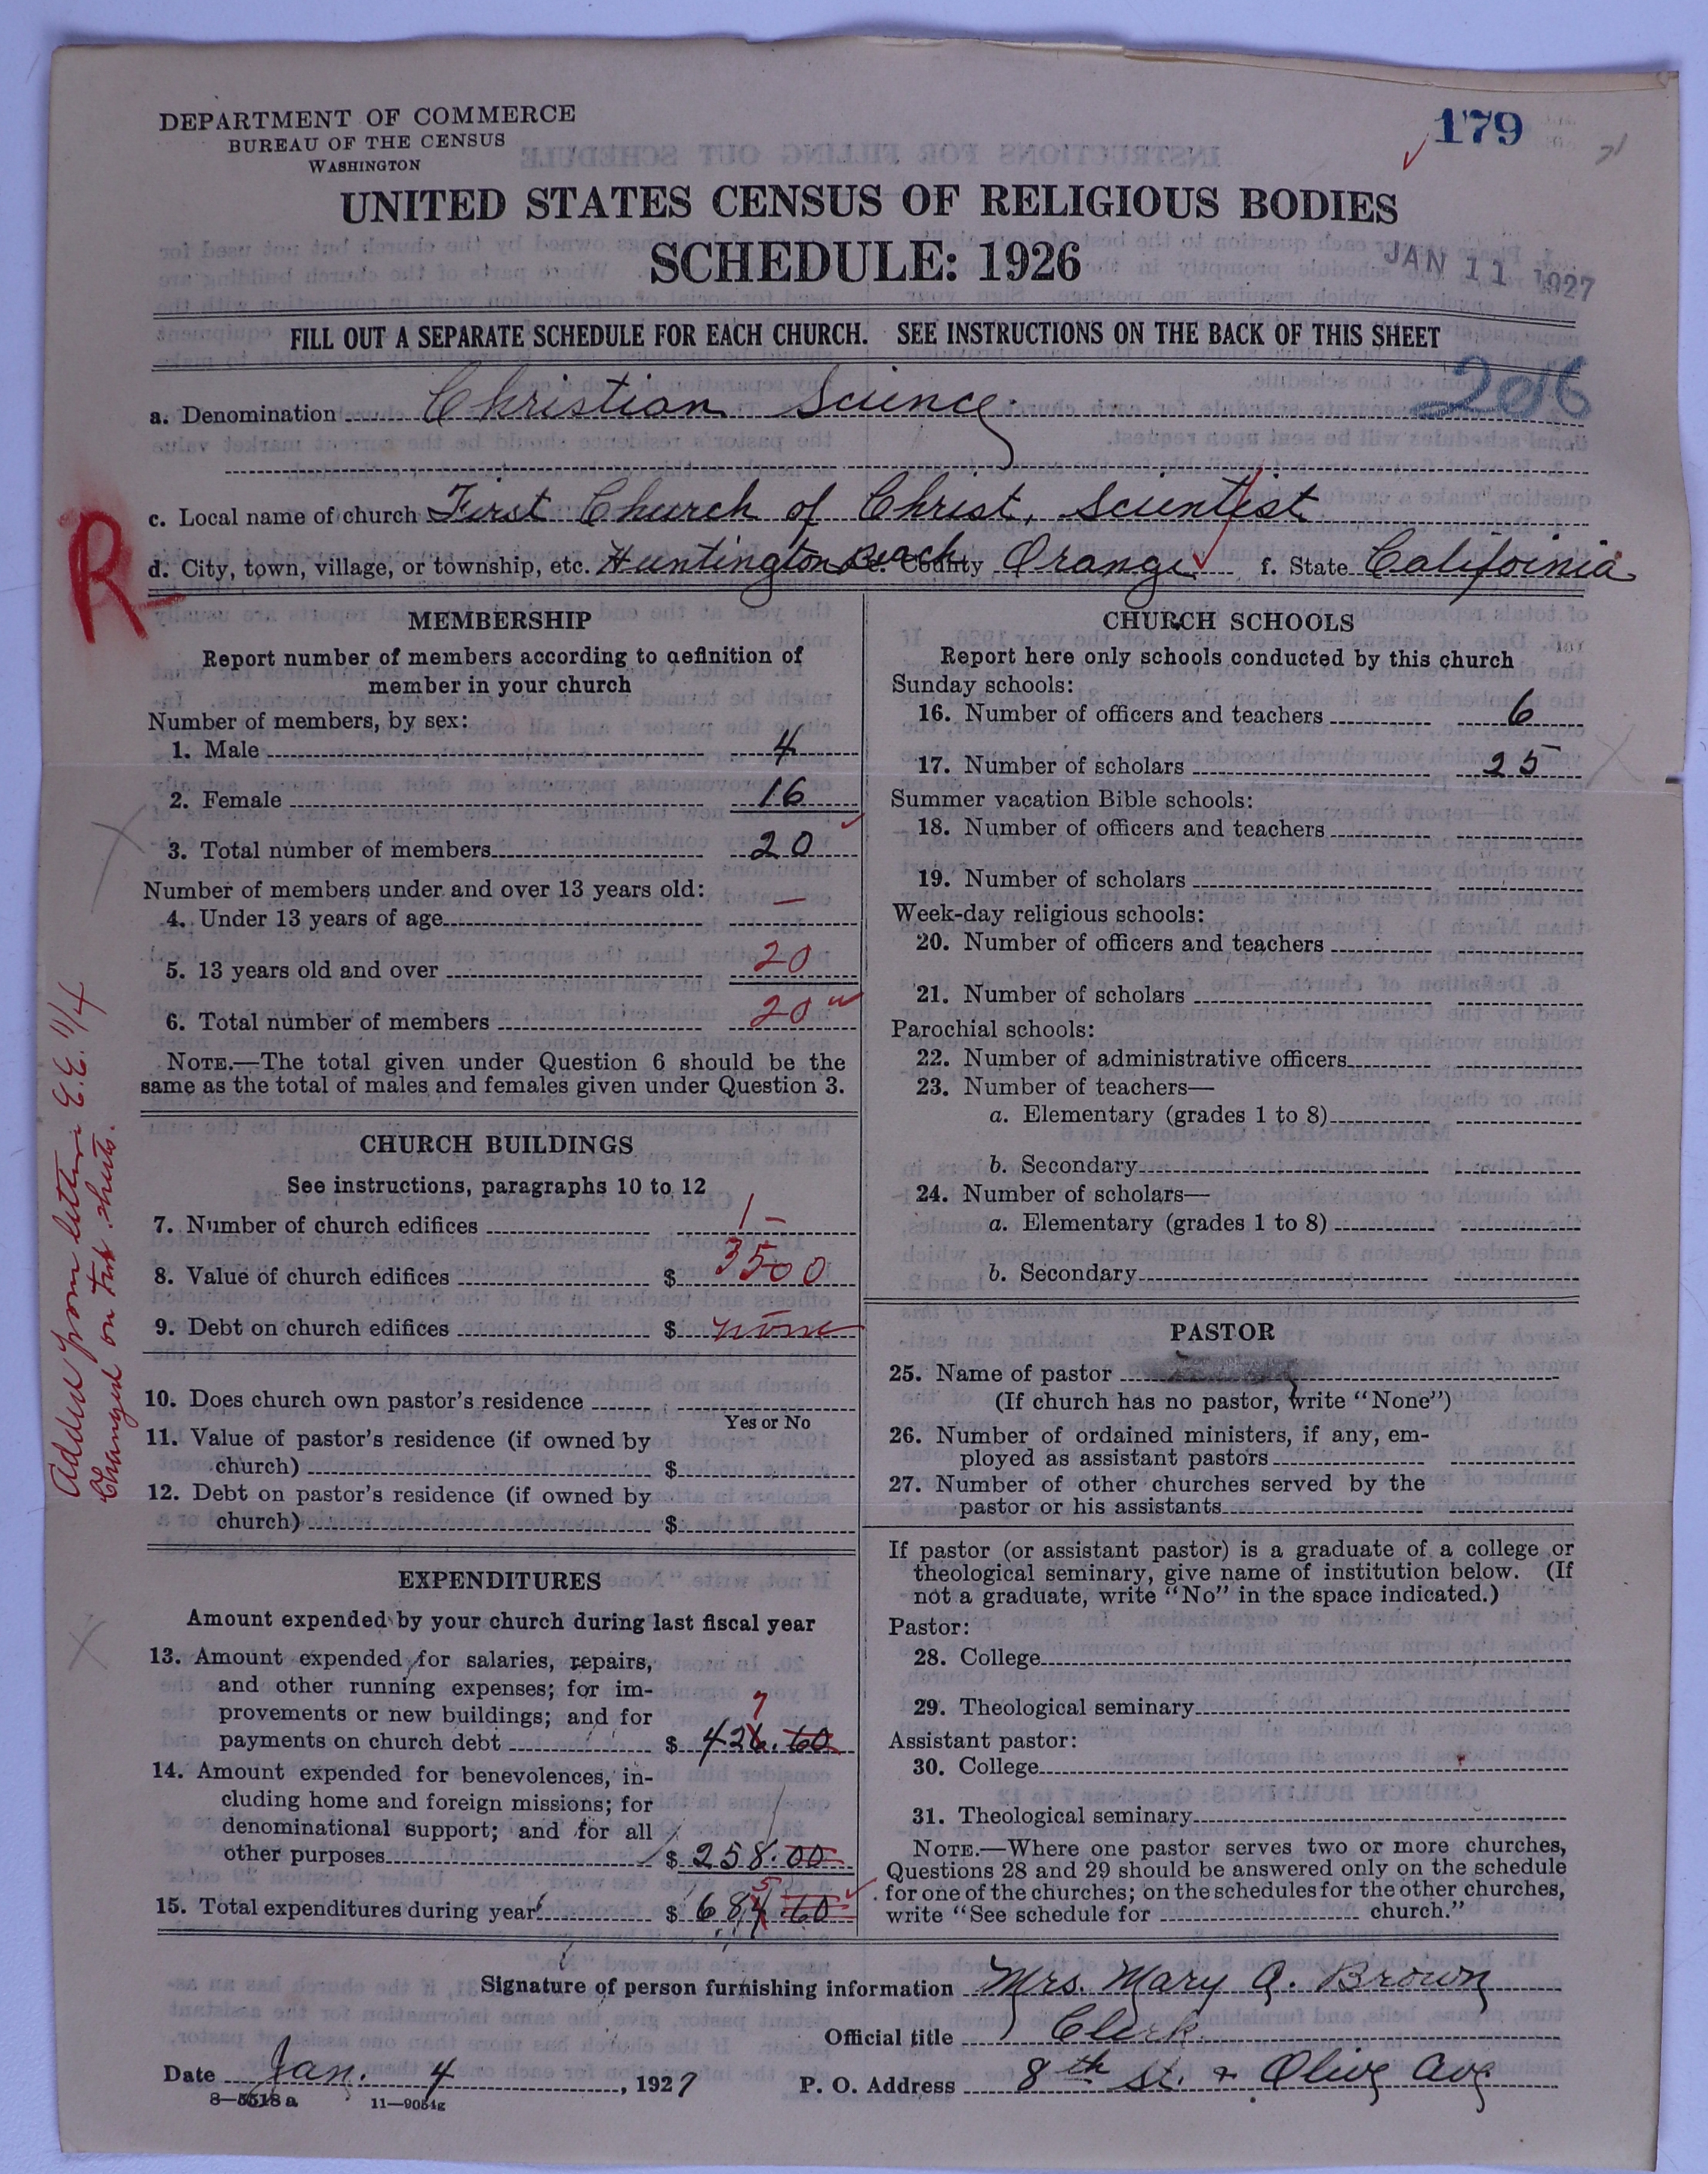 DEPARTMENT OF COMMERCE
BUREAU OF THE CENSUS
WASHINGTON
179
UNITED STATES CENSUS OF RELIGIOUS BODIES
SCHEDULE: 1926
JAN 11 1927
FILL OUT A SEPARATE SCHEDULE FOR EACH CHURCH. SEE INSTRUCTIONS ON THE BACK OF THIS SHEET
206
a. Denomination Christian Science.
c. Local name of church First Church of Christ, Scientist
d. City, town, village, or township, etc. Huntington Beach e. County Orange f. State California
R
MEMBERSHIP
Report number of members according to definition of
member in your church
Number of members, by sex:
1. Male 4
2. Female 16
3. Total number of members 20
Number of members under and over 13 years old:
4. Under 13 years of age —
5. 13 years old and over 20
6. Total number of members 20
NOTE.—The total given under Question 6 should be the
same as the total of males and females given under Question 3.
CHURCH BUILDINGS
See instructions, paragraphs 10 to 12
7. Number of church edifices 1
8. Value of church edifices $ 3500
9. Debt on church edifices $ none
10. Does church own pastor's residence
Yes or No
11. Value of pastor's residence (if owned by
church) $
12. Debt on pastor's residence (if owned by
church) $
EXPENDITURES
Amount expended by your church during last fiscal year
13. Amount expended for salaries, repairs,
and other running expenses; for im-
provements or new buildings; and for
7
payments on church debt $ 426.60
14. Amount expended for benevolences, in-
cluding home and foreign missions; for
denominational support; and for all
other purposes $ 258.00
5
15. Total expenditures during year $ 684.60
Added from letter E.E. 11/4
Changed on tab. sheets.
CHURCH SCHOOLS
Report here only schools conducted by this church
Sunday schools:
16. Number of officers and teachers 6
17. Number of scholars 25
Summer vacation Bible schools:
18. Number of officers and teachers
19. Number of scholars
Week-day religious schools:
20. Number of officers and teachers
21. Number of scholars
Parochial schools:
22. Number of administrative officers
23. Number of teachers—
a. Elementary (grades 1 to 8)
b. Secondary
24. Number of scholars—
a. Elementary (grades 1 to 8)
b. Secondary
PASTOR
25. Name of pastor
(If church has no pastor, write "None")
26. Number of ordained ministers, if any, em-
ployed as assistant pastors
27. Number of other churches served by the
pastor or his assistants
If pastor (or assistant pastor) is a graduate of a college or
theological seminary, give name of institution below. (If
not a graduate, write "No" in the space indicated.)
Pastor:
28. College
29. Theological seminary
Assistant pastor:
30. College
31. Theological seminary
NOTE.—Where one pastor serves two or more churches,
Questions 28 and 29 should be answered only on the schedule
for one of the churches; on the schedules for the other churches,
write "See schedule for church."
Signature of person furnishing information Mrs. Mary A. Brown
Official title Clerk
Date Jan. 4, 1927 P. O. Address 8th St. + Olive Ave
8—5518 a 11—9054g